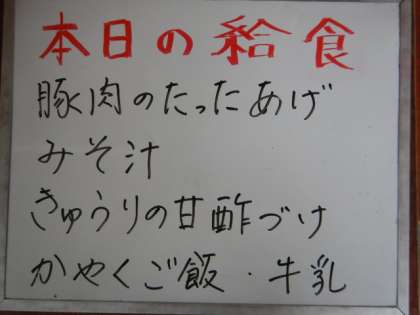 本日の給食
豚肉のたったあげ
みそ汁
きゅうりの甘酢づけ
かやくご飯・牛乳